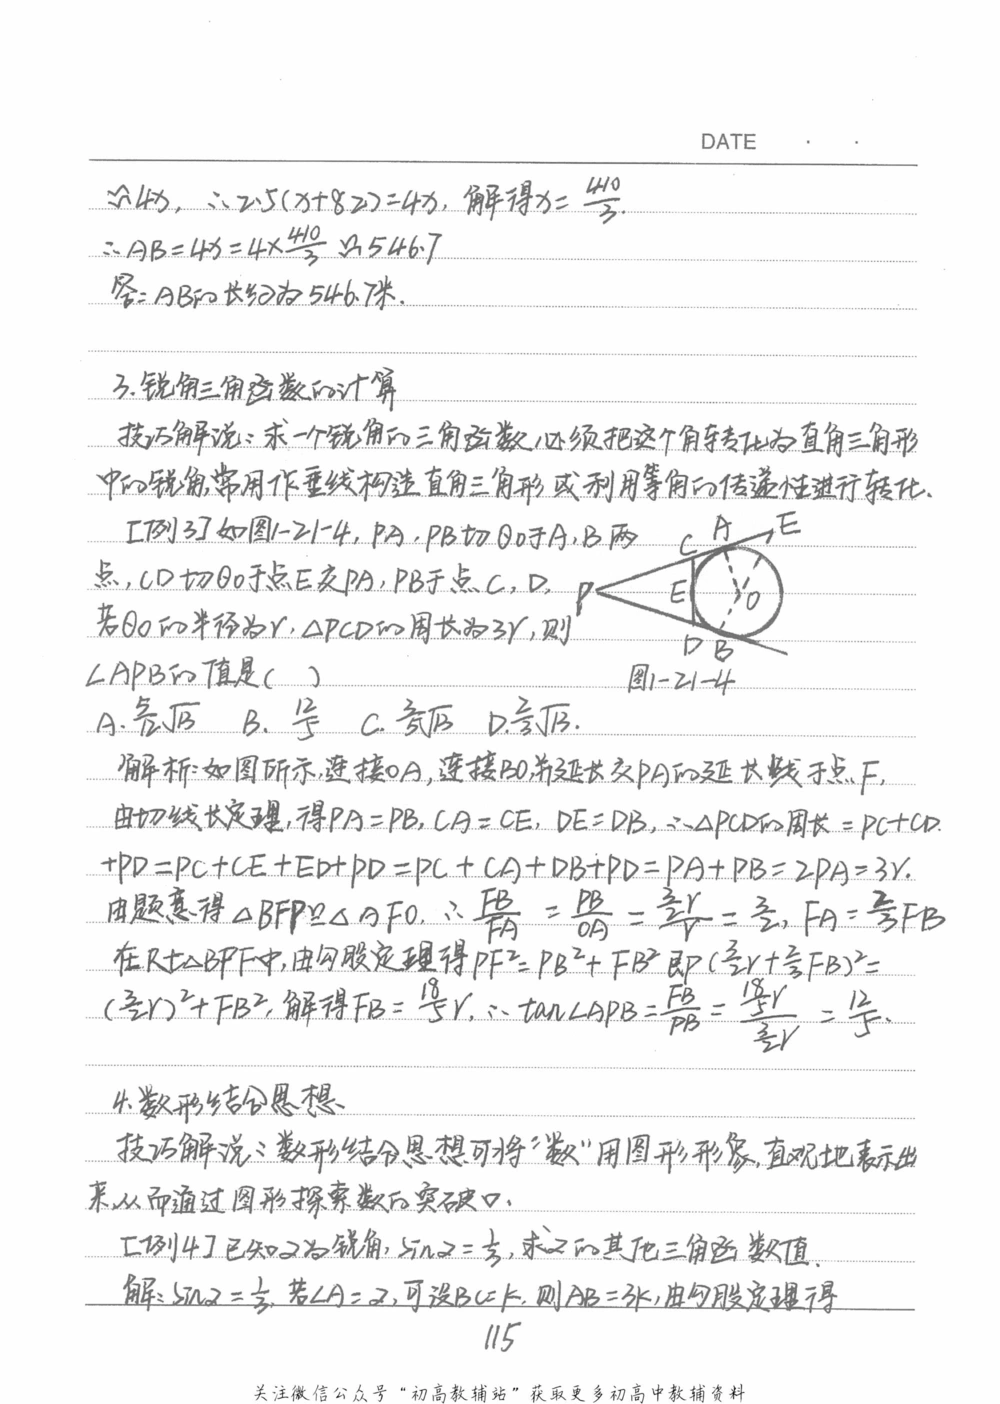 DATE · ·
≈4x, ∴2.5(x+82)=4x, 解得x=410/3.
∴AB=4x=4×410/3≈546.7
答:AB的长约为546.7米.
3.锐角三角函数的计算
技巧解说:求一个锐角的三角函数,必须把这个角转化为直角三角形
中的锐角,常用作垂线构造直角三角形或利用等角的传递性进行转化.
[例3]如图1-21-4,PA,PB切⊙O于A,B两
点,CD切⊙O于点E交PA,PB于点C,D.
若⊙O的半径为r,△PCD的周长为3r,则
∠APB的值是( )
P C A E E O D B
图1-21-4
A.5/12√13 B.12/5 C.3/5√13 D.2/3√13.
解析:如图所示,连接OA,连接BO,并延长交PA的延长线于点F,
由切线长定理,得PA=PB,CA=CE,DE=DB,∴△PCD的周长=PC+CD
+PD=PC+CE+ED+PD=PC+CA+DB+PD=PA+PB=2PA=3r.
由题意得△BFP∽△AFO.∴FB/FA=PB/OA=3/2r/r=3/2,FA=2/3FB
在Rt△BPF中,由勾股定理得PF²=PB²+FB²即(3/2r+2/3FB)²=
(3/2r)²+FB²,解得FB=18/5r,∴tan∠APB=FB/PB=18/5r/3/2r=12/5.
4.数形结合思想
技巧解说:数形结合思想可将“数”用图形形象,直观地表示出
来,从而通过图形探索数的突破口.
[例4]已知α为锐角,sinα=1/3,求α的其他三角函数值.
解:sinα=1/3,若∠A=α,可设BC=k,则AB=3k,由勾股定理得
115
关注微信公众号“初高教辅站”获取更多初高中教辅资料